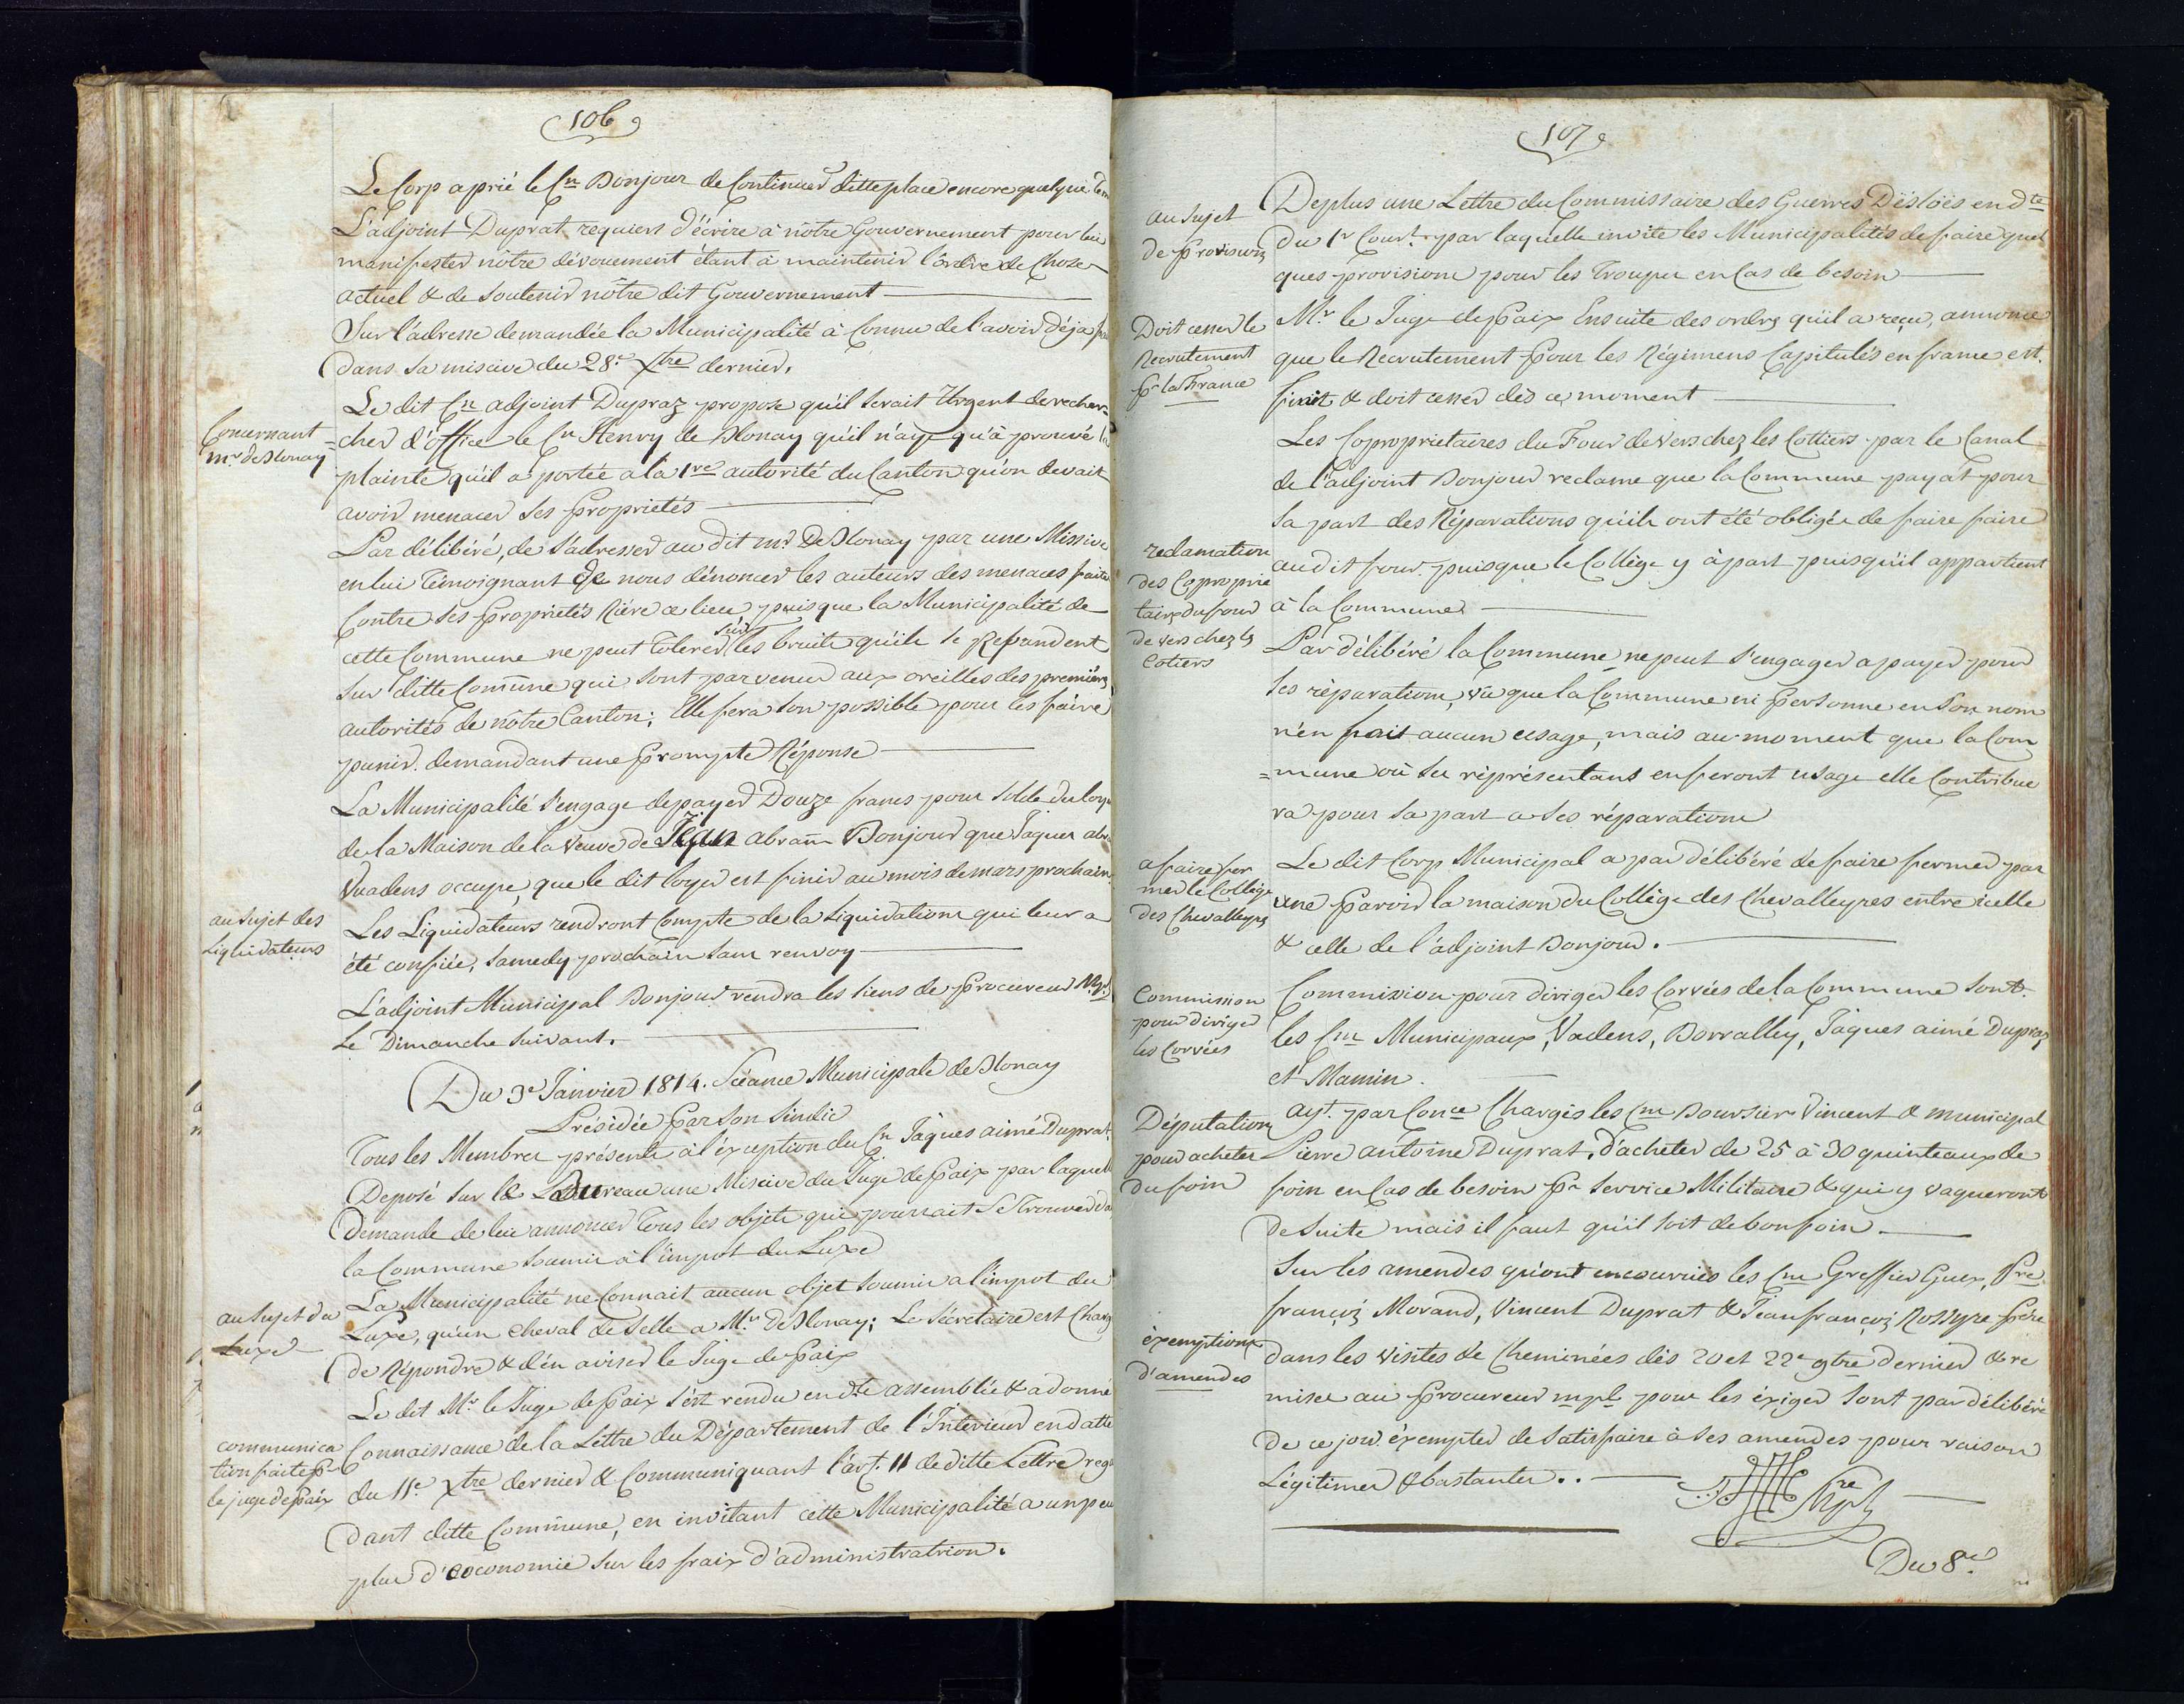 106
Le Corp a prié le Cn Bonjour de Continuer ditte place encore quelque
L'adjoint Duprat requiert d'écrire à nôtre Gouvernement pour lui
manifester nôtre dévouement étant à maintenir l'ordre de Chose
actuel & de soutenir nôtre dit Gouvernement
Sur l'adresse demandée la Municipalité à Connu de l'avoir déja
dans sa misive du 28e Xbre dernier.
Concernant
mr de Blonay
Le dit Cn adjoint Dupraz propose qu'il serait Urgent de recher=
=cher d'office le Cn Henry de Blonay qu'il n'aye qu'à prouvé la
plainte qu'il a portée à la 1re autorité du Canton qu'on devait
avoir menacer ses Proprietés
Par délibéré, de s'adresser au dit mr De Blonay par une Missive
en lui Témoignant de nous dénoncer les auteurs des menaces faites
Contre ses Proprietés riére ce lieu puisque la Municipalité de
cette Commune ne peut Tolerer sur les bruits qu'ils se Repandent
sur ditte Comune qui sont parvenus aux oreilles des premières
autorités de nôtre Canton; Elle fera son possible pour les faire
punir. demandant une Prompte Réponse
La Municipalité s'engage de payer Douze francs pour solde du loye
de la Maison de la Veuve de Jean abram Bonjour que Jaques abr
Vuadens occupe, que le dit loyer est finir au mois de mars prochain
au sujet des
Liquidateurs
Les Liquidateurs rendront Compte de la Liquidation qui leur a
été confiée, samedy prochain sans renvoy
L'adjoint Municipal Bonjour rendra les siens de Procureur Mpl
Le Dimanche suivant.
Du 3e Janvier 1814. Séance Municipale de Blonay
Présidée Par son Sindic
Tous les Membres présents à l'éxception du Cn Jaques aimé Duprat
Deposé sur le Bureau une Misive du Juge de Paix par laquelle
Demande de lui annoncer Tous les objets qui pourrait se Trouver da
la Commune soumis à l'impot du Luxe
au sujet du
Luxe
La Municipalité ne Connait aucun objet soumis a l'impot du
Luxe, qu'un Cheval de Selle a Mr De Blonay; Le Sécrétaire est Charg
de Répondre & d'en aviser le Juge de Paix
Le dit Mr le Juge de Paix s'est rendu en dte assemblée & a donné
communica
tion faite Pr
le juge de Paix
Connaissance de la Lettre du Département de l'Interieur en datte
du 11e Xbre dernier & Communiquant l'art. 11 de ditte Lettre reg
dant ditte Commune, en invitant cette Municipalité a un peu
plus d'oeconomie sur les fraix d'administration.
107
au sujet
de Provisions
De plus une Lettre du Commissaire des Guerres Désloës en dte
du 1r Court. par laquelle invite les Municipalités de faire quel
ques provisions pour les Troupes en Cas de besoin
Doit cesser le
Recrutement
Pr la France
Mr le Juge de Paix Ensuite des ordres qu'il a reçu, annonce
que le Recrutement Pour les Régimens Capitulés en france est
finit & doit cesser dès ce moment
Les Coproprietaires du Four de Vers chez les Cottiers par le Canal
de l'adjoint Bonjour reclame que la Commune payat pour
sa part des Réparations qu'ils ont été obligés de faire faire
reclamation
des Coproprie
taires du four
de vers chez ls
Cotiers
au dit four puisque le Collège y à part puisqu'il appartient
à la Commune
Par délibéré la Commune ne peut s'engager a payer pour
ses réparations, vû que la Commune ni Personne en Son nom
n'en fait aucun usage, mais au moment que la Com
=mune ou ses réprésentans en feront usage elle Contribue
ra pour sa part a ses réparations
a faire fer
mer le Collège
des Chevalleyres
Le dit Corp Municipal a par délibéré de faire fermer par
une Paroir la maison du Collège des Chevalleyres entre icelle
& celle de l'adjoint Bonjour.
Commission
pour diriger
les Corvées
Commission pour diriger les Corvées de la Commune sont
les Cns Municipaux, Vadens, Borralley, Jaques aimé Dupraz
et Mamin.
Députation
pour acheter
du foin
ayt. par Conce Chargés les Cns Boursier Vincent & municipal
Pierre antoine Duprat, d'acheter de 25 à 30 quinteaux de
foin en Cas de besoin Pr service Militaire & qui y vaqueront
de suite mais il faut qu'il soit de bon foin.
Sur les amendes qu'ont encourries les Cns Greffier Guex, Pre
françois Morand, Vincent Duprat & Jean françois Rossyre Père
éxemptions
d'amendes
dans les visites de Cheminées dès 20 et 22e 9bre dernier & re
mises au Procureur mpl pour les éxiger sont par délibéré
de ce jour éxemptes de satisfaire à ses amendes pour raison
Légitimes & bastantes..
Du 8e